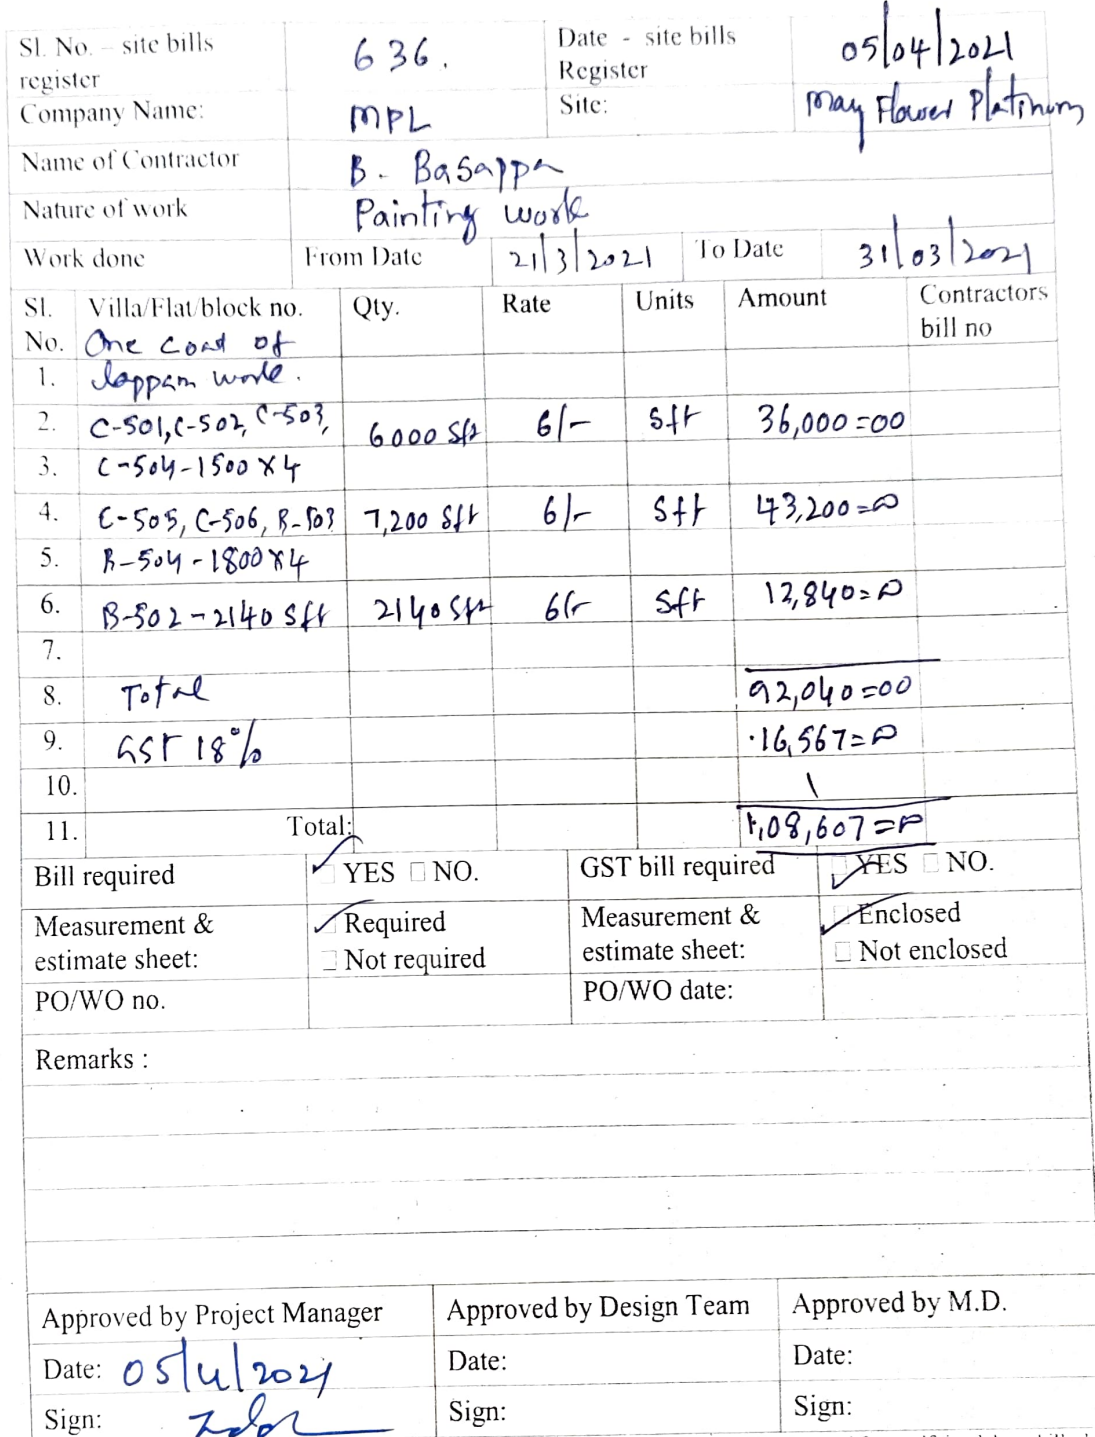 Sl. No. – site bills register 636. Date - site bills Register 05/04/2021
Company Name: MPL Site: May Flower Platinum
Name of Contractor B. Basappa
Nature of work Painting work
Work done From Date 21/3/2021 To Date 31/03/2021
Sl. No. Villa/Flat/block no. Qty. Rate Units Amount Contractors bill no
One coat of
1. lappam work.
2. C-501, C-502, C-503, 6000 Sft 6/- Sft 36,000=00
3. C-504-1500X4
4. C-505, C-506, B-503 7,200 Sft 6/- Sft 43,200=00
5. B-504-1800X4
6. B-502-2140 Sft 2140 Sft 6/- Sft 12,840=00
7.
8. Total 92,040=00
9. GST 18% 16,567=00
10.
11. Total: 1,08,607=00
Bill required YES NO. GST bill required YES NO.
Measurement & estimate sheet: Required Not required Measurement & estimate sheet: Enclosed Not enclosed
PO/WO no. PO/WO date:
Remarks :
Approved by Project Manager Approved by Design Team Approved by M.D.
Date: 05/4/2021 Date: Date:
Sign: Sign: Sign: